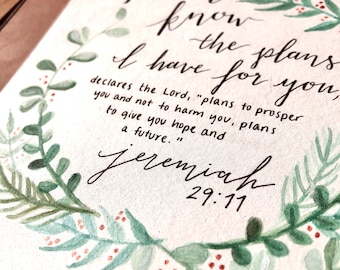 know
the plans
I have for you,
declares the Lord, "plans to prosper
you and not to harm you, plans
to give you hope and
a future."
jeremiah
29:11